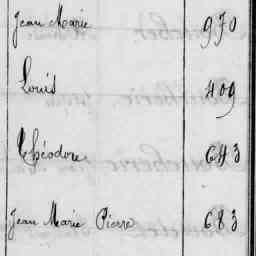 Jean Marie 970
Louis 409
Théodore 643
Jean Marie Pierre 683